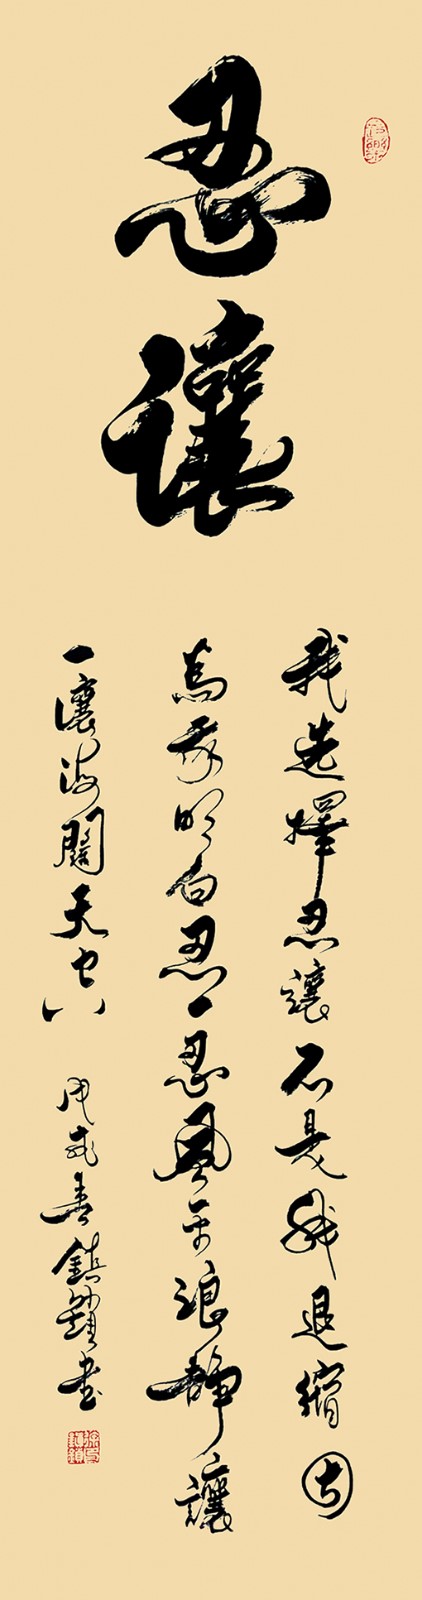 忍
讓
我选擇忍讓不是我退縮因
為我明白忍一忍風平浪靜讓
一讓海闊天空
戌春鎮 書